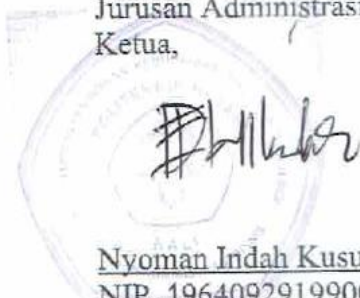 Jurusan Administrasi
Ketua,
BALI
Nyoman Indah Kusu
NIP. 1964092919900